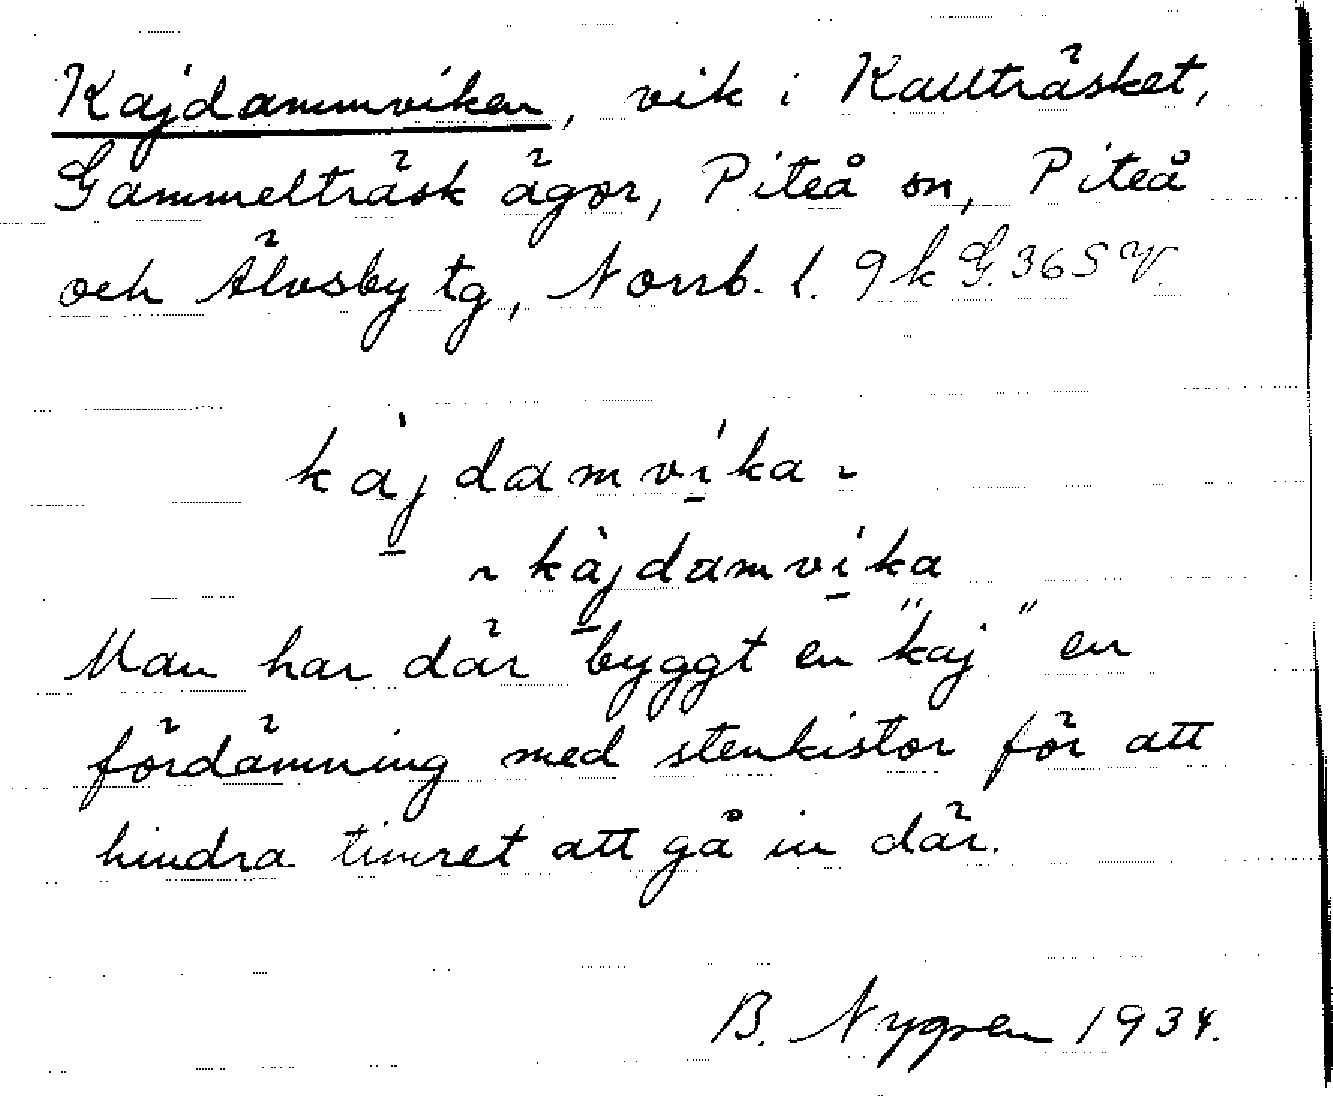 Kajdammviken, vik i Kallträsket,
Gammelträsk ägor, Piteå sn, Piteå
och Älvsby tg, Norrb. l. 9k G. 36 SV.
kàjdamvíka ~
~ kàjdamvíka
Man har där byggt en "kaj" en
fördämning med stenkistor för att
hindra timret att gå in där.
B. Nygren 1934.